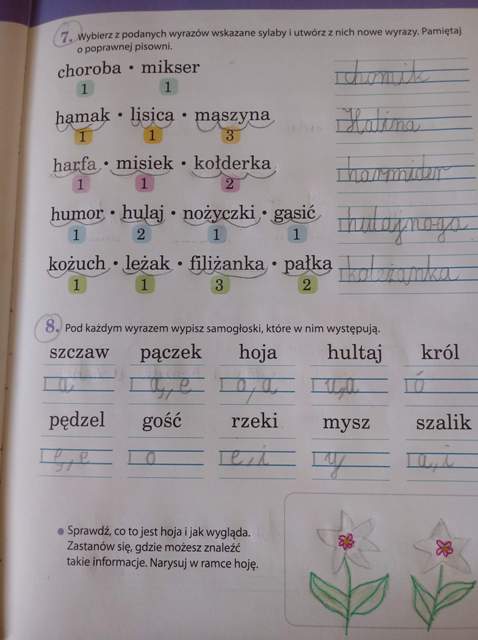 7. Wybierz z podanych wyrazów wskazane sylaby i utwórz z nich nowe wyrazy. Pamiętaj
o poprawnej pisowni.
choroba • mikser chomik
1 1
hamak • lisica • maszyna Halina
1 1 3
harfa • misiek • kołderka harmider
1 1 2
humor • hulaj • nożyczki • gasić hulajnoga
1 2 1 1
kożuch • leżak • filiżanka • pałka koleżanka
1 1 3 2
8. Pod każdym wyrazem wypisz samogłoski, które w nim występują.
szczaw pączek hoja hultaj król
a ą, e o, a u, a ó
pędzel gość rzeki mysz szalik
ę, e o e, i y a, i
• Sprawdź, co to jest hoja i jak wygląda.
Zastanów się, gdzie możesz znaleźć
takie informacje. Narysuj w ramce hoję.